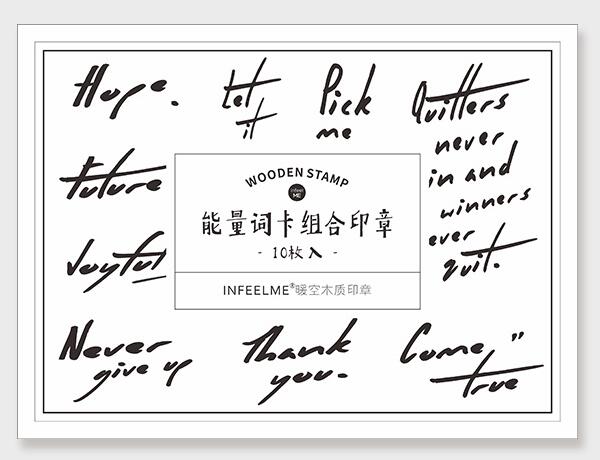 Hope.
Let
it
Pick
me
Quitters
never
in and
winners
ever
quit.
Future
Joyful
WOODEN STAMP
infeel
ME
能量词卡组合印章
- 10枚入 -
INFEELME®暖空木质印章
Never
give up
Thank
you.
Come "
true